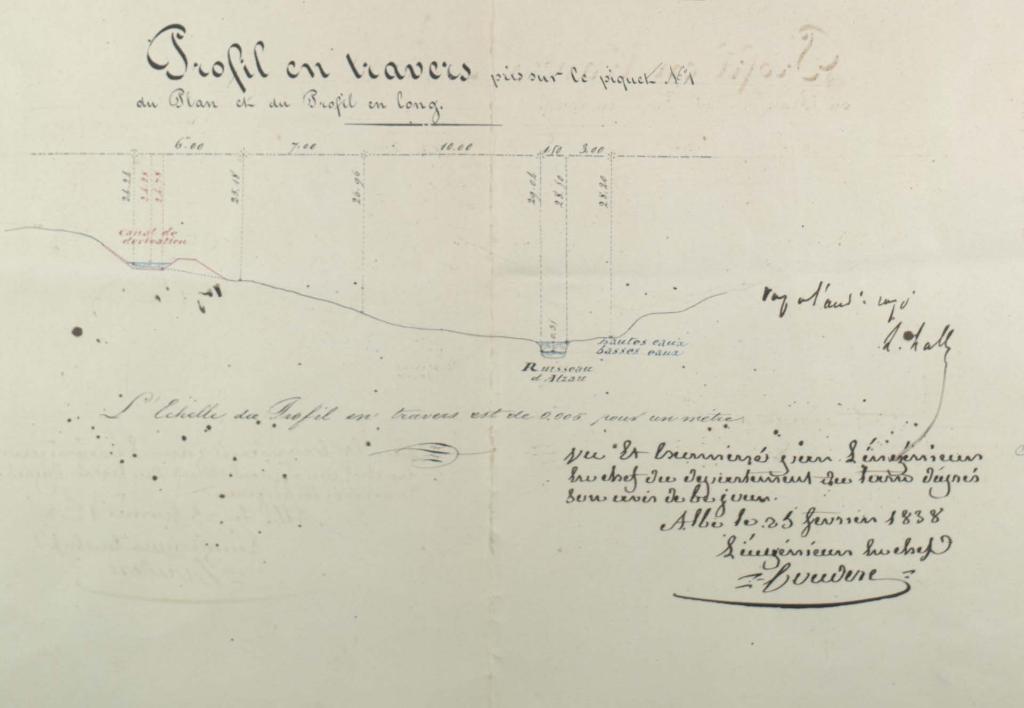 Profil en travers pris sur le piquet N°1
du Plan et du Profil en long.
6.00 7.00 10.00 1.50 3.00
25.18 26.96 29.04 28.50 28.20
canal de
derivation
0.51
hautes eaux
basses eaux
Ruisseau
d'Alzau
L'Echelle du Profil en travers est de 0.005 pour un mètre
vu Et par L'ingénieur
En chef du departement du tarn d'après
Son avis de ce jour.
Albi le 25 fevrier 1838
L'ingénieur En chef